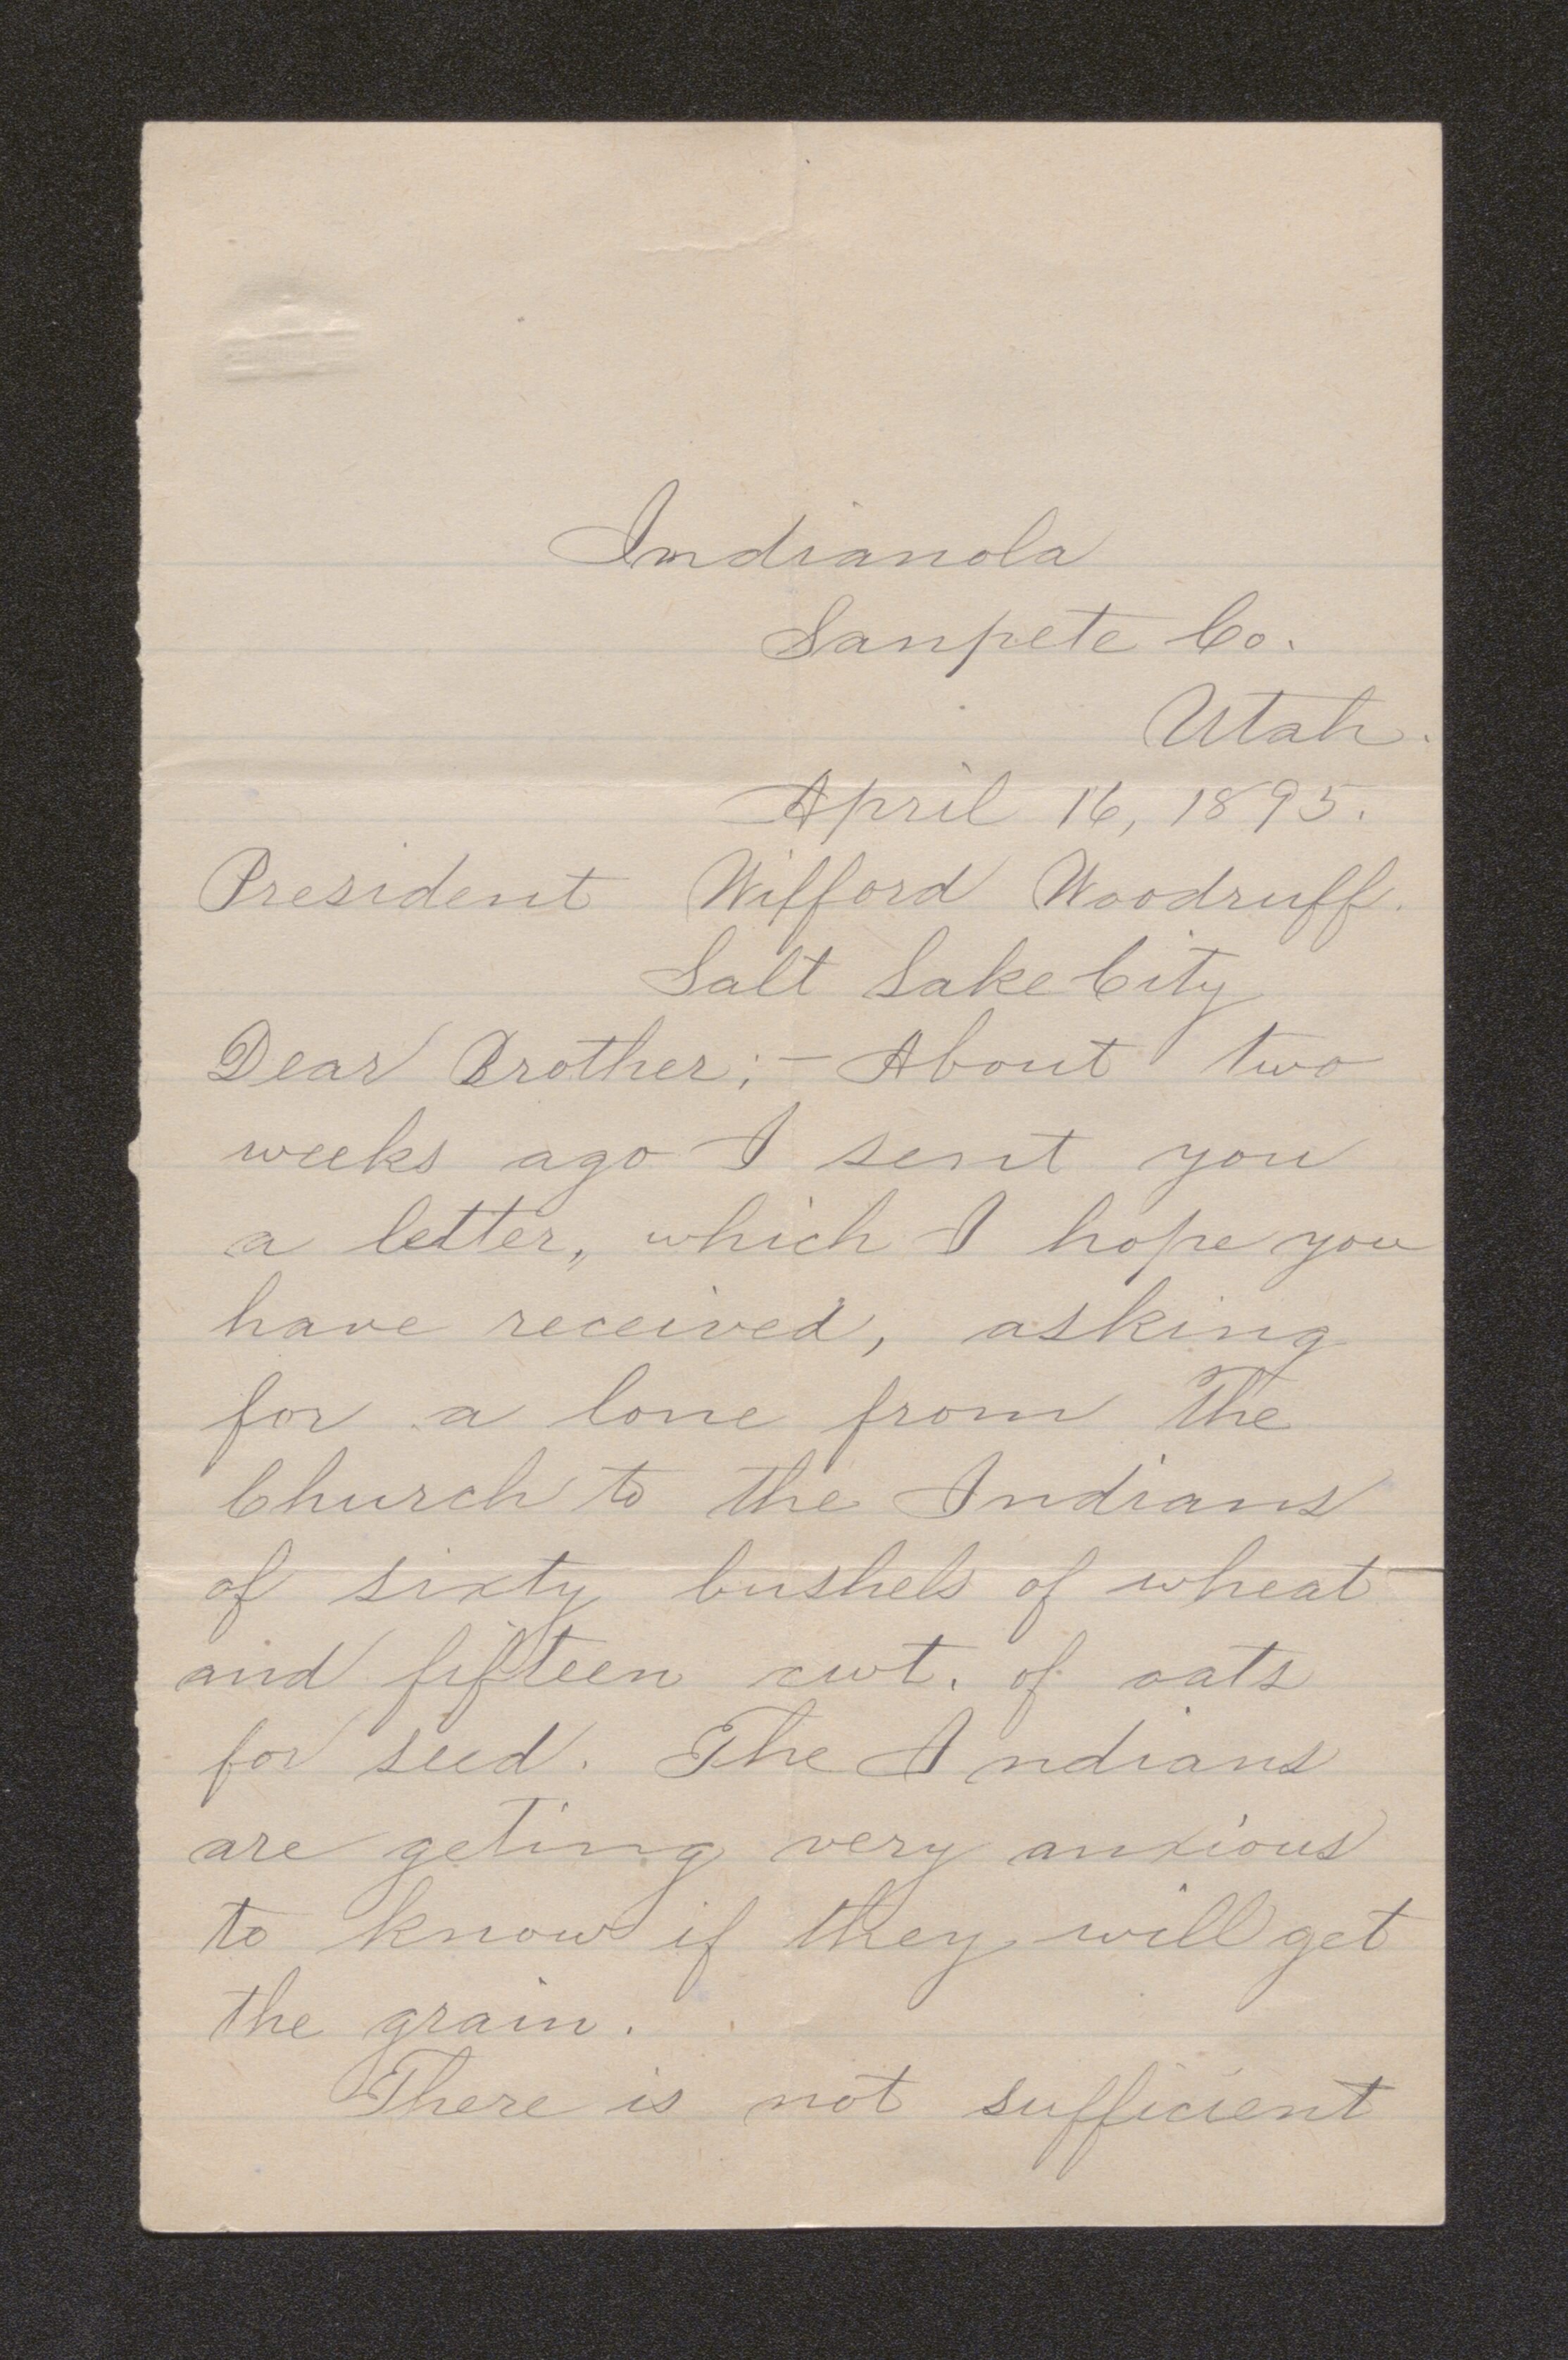 Indianola
Sanpete Co.
Utah.
April 16, 1895.
President Wifford Woodruff.
Salt Lake City
Dear Brother;- About two
weeks ago I sent you
a letter, which I hope you
have received, asking
for a lone from the
Church to the Indians
of sixty bushels of wheat
and fifteen cwt. of oats
for seed. The Indians
are geting very anxious
to know if they will get
the grain.
There is not sufficient